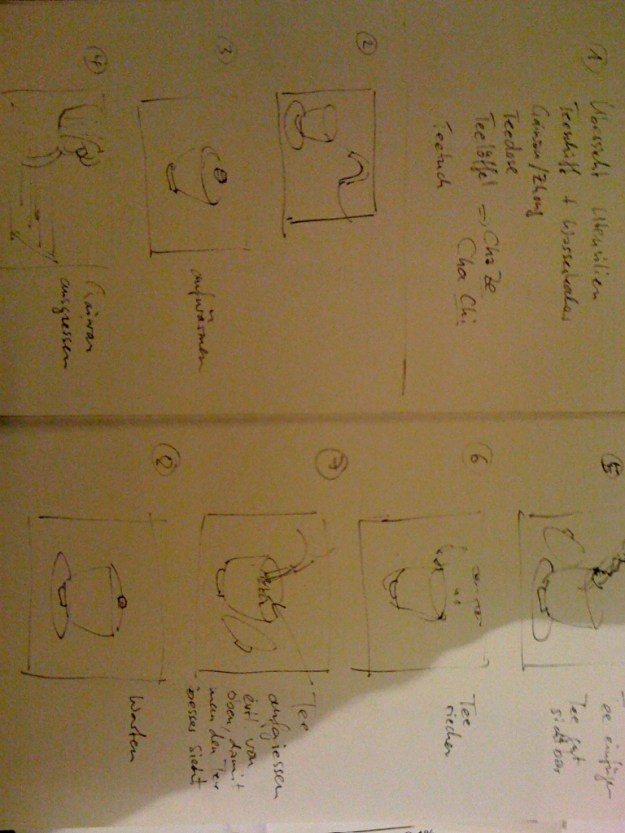 ① Übersicht Utensilien
Teeschiff + Wasserkocher
Gaiwan/Zhong
Teedose
Teelöffel => Cha Ze
Cha Chi
Teetuch
②
③
aufwärmen
④
Gaiwan
ausgiessen
⑤
ee einfügen
Tee gut
sichtbar
6
Tee
riechen
⑦
Tee
aufgiessen
evtl von
oben, damit
man den Tee
besser sieht
⑧
Warten